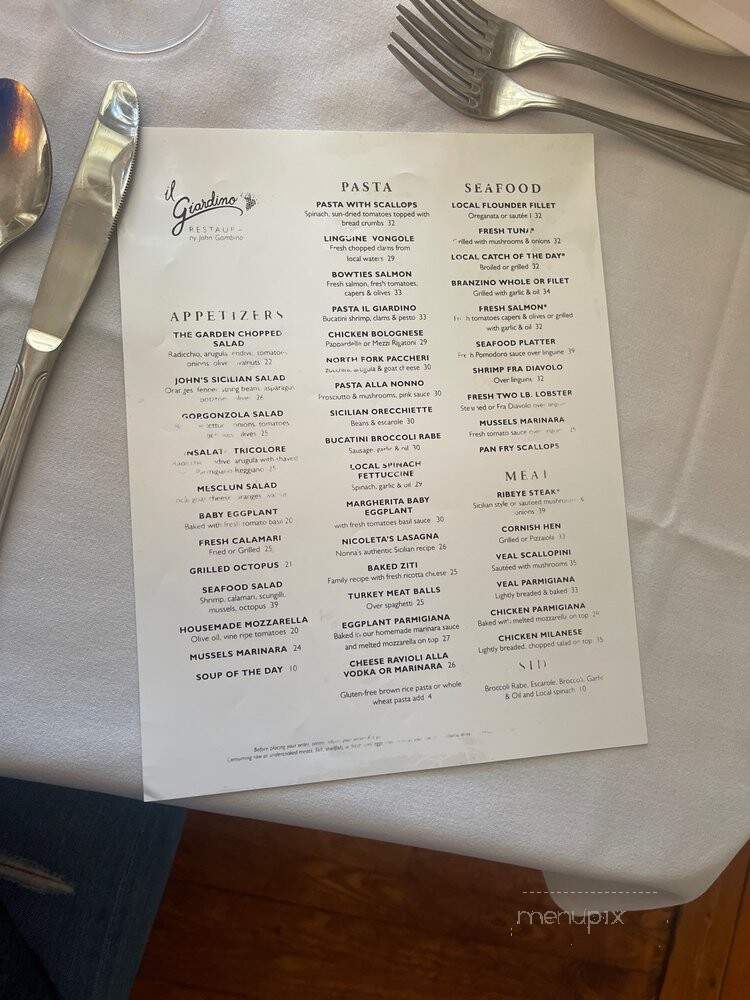 il
Giardino
by John Gambino
APPETIZERS
THE GARDEN CHOPPED
SALAD
Radicchio, arugula, endive, tomatoes,
onions, olives, walnuts 22
JOHN'S SICILIAN SALAD
Oranges, fennel, string beans, asparagus,
potatoes, olives 26
GORGONZOLA SALAD
onions, tomatoes,
olives 25
INSALATA TRICOLORE
endive, arugula with shaved
Parmigiano Reggiano 25
MESCLUN SALAD
goat cheese, oranges,
BABY EGGPLANT
Baked with fresh tomato basil 20
FRESH CALAMARI
Fried or Grilled 25
GRILLED OCTOPUS 21
SEAFOOD SALAD
Shrimp, calamari, scungilli,
mussels, octopus 39
HOUSEMADE MOZZARELLA
Olive oil, vine ripe tomatoes 20
MUSSELS MARINARA 24
SOUP OF THE DAY 10
PASTA
PASTA WITH SCALLOPS
Spinach, sun-dried tomatoes topped with
bread crumbs 32
LINGUINE VONGOLE
Fresh chopped clams from
local waters 29
BOWTIES SALMON
Fresh salmon, fresh tomatoes,
capers & olives 33
PASTA IL GIARDINO
Bucatini shrimp, clams & pesto 33
CHICKEN BOLOGNESE
Pappardelle or Mezzi Rigatoni 29
NORTH FORK PACCHERI
zucchini, arugula & goat cheese 30
PASTA ALLA NONNO
Prosciutto & mushrooms, pink sauce 30
SICILIAN ORECCHIETTE
Beans & escarole 30
BUCATINI BROCCOLI RABE
Sausage, garlic & oil 30
LOCAL SPINACH
FETTUCCINE
Spinach, garlic & oil 29
MARGHERITA BABY
EGGPLANT
with fresh tomatoes basil sauce 30
NICOLETA'S LASAGNA
Nonna's authentic Sicilian recipe 26
BAKED ZITI
Family recipe with fresh ricotta cheese 25
TURKEY MEAT BALLS
Over spaghetti 25
EGGPLANT PARMIGIANA
Baked in our homemade marinara sauce
and melted mozzarella on top 27
CHEESE RAVIOLI ALLA
VODKA OR MARINARA 26
Gluten-free brown rice pasta or whole
wheat pasta add 4
SEAFOOD
LOCAL FLOUNDER FILLET
Oreganata or sautéed 32
FRESH TUNA*
Grilled with mushrooms & onions 32
LOCAL CATCH OF THE DAY*
Broiled or grilled 32
BRANZINO WHOLE OR FILET
Grilled with garlic & oil 34
FRESH SALMON*
Fresh tomatoes capers & olives or grilled
with garlic & oil 32
SEAFOOD PLATTER
Fresh Pomodoro sauce over linguine 39
SHRIMP FRA DIAVOLO
Over linguine 32
FRESH TWO LB. LOBSTER
Steamed or Fra Diavolo over linguine
MUSSELS MARINARA
Fresh tomato sauce over linguine 25
PAN FRY SCALLOPS
MEAT
RIBEYE STEAK*
Sicilian style or sauteed mushrooms &
onions 39
CORNISH HEN
Grilled or Pizzaiola 33
VEAL SCALLOPINI
Sautéed with mushrooms 35
VEAL PARMIGIANA
Lightly breaded & baked 33
CHICKEN PARMIGIANA
Baked with melted mozzarella on top 24
CHICKEN MILANESE
Lightly breaded, chopped salad on top 35
Broccoli Rabe, Escarole, Broccoli, Garlic
& Oil and Local spinach 10
Before placing your order, please inform your server if a
Consuming raw or undercooked meats, fish, shellfish, or fresh shell eggs
menupix